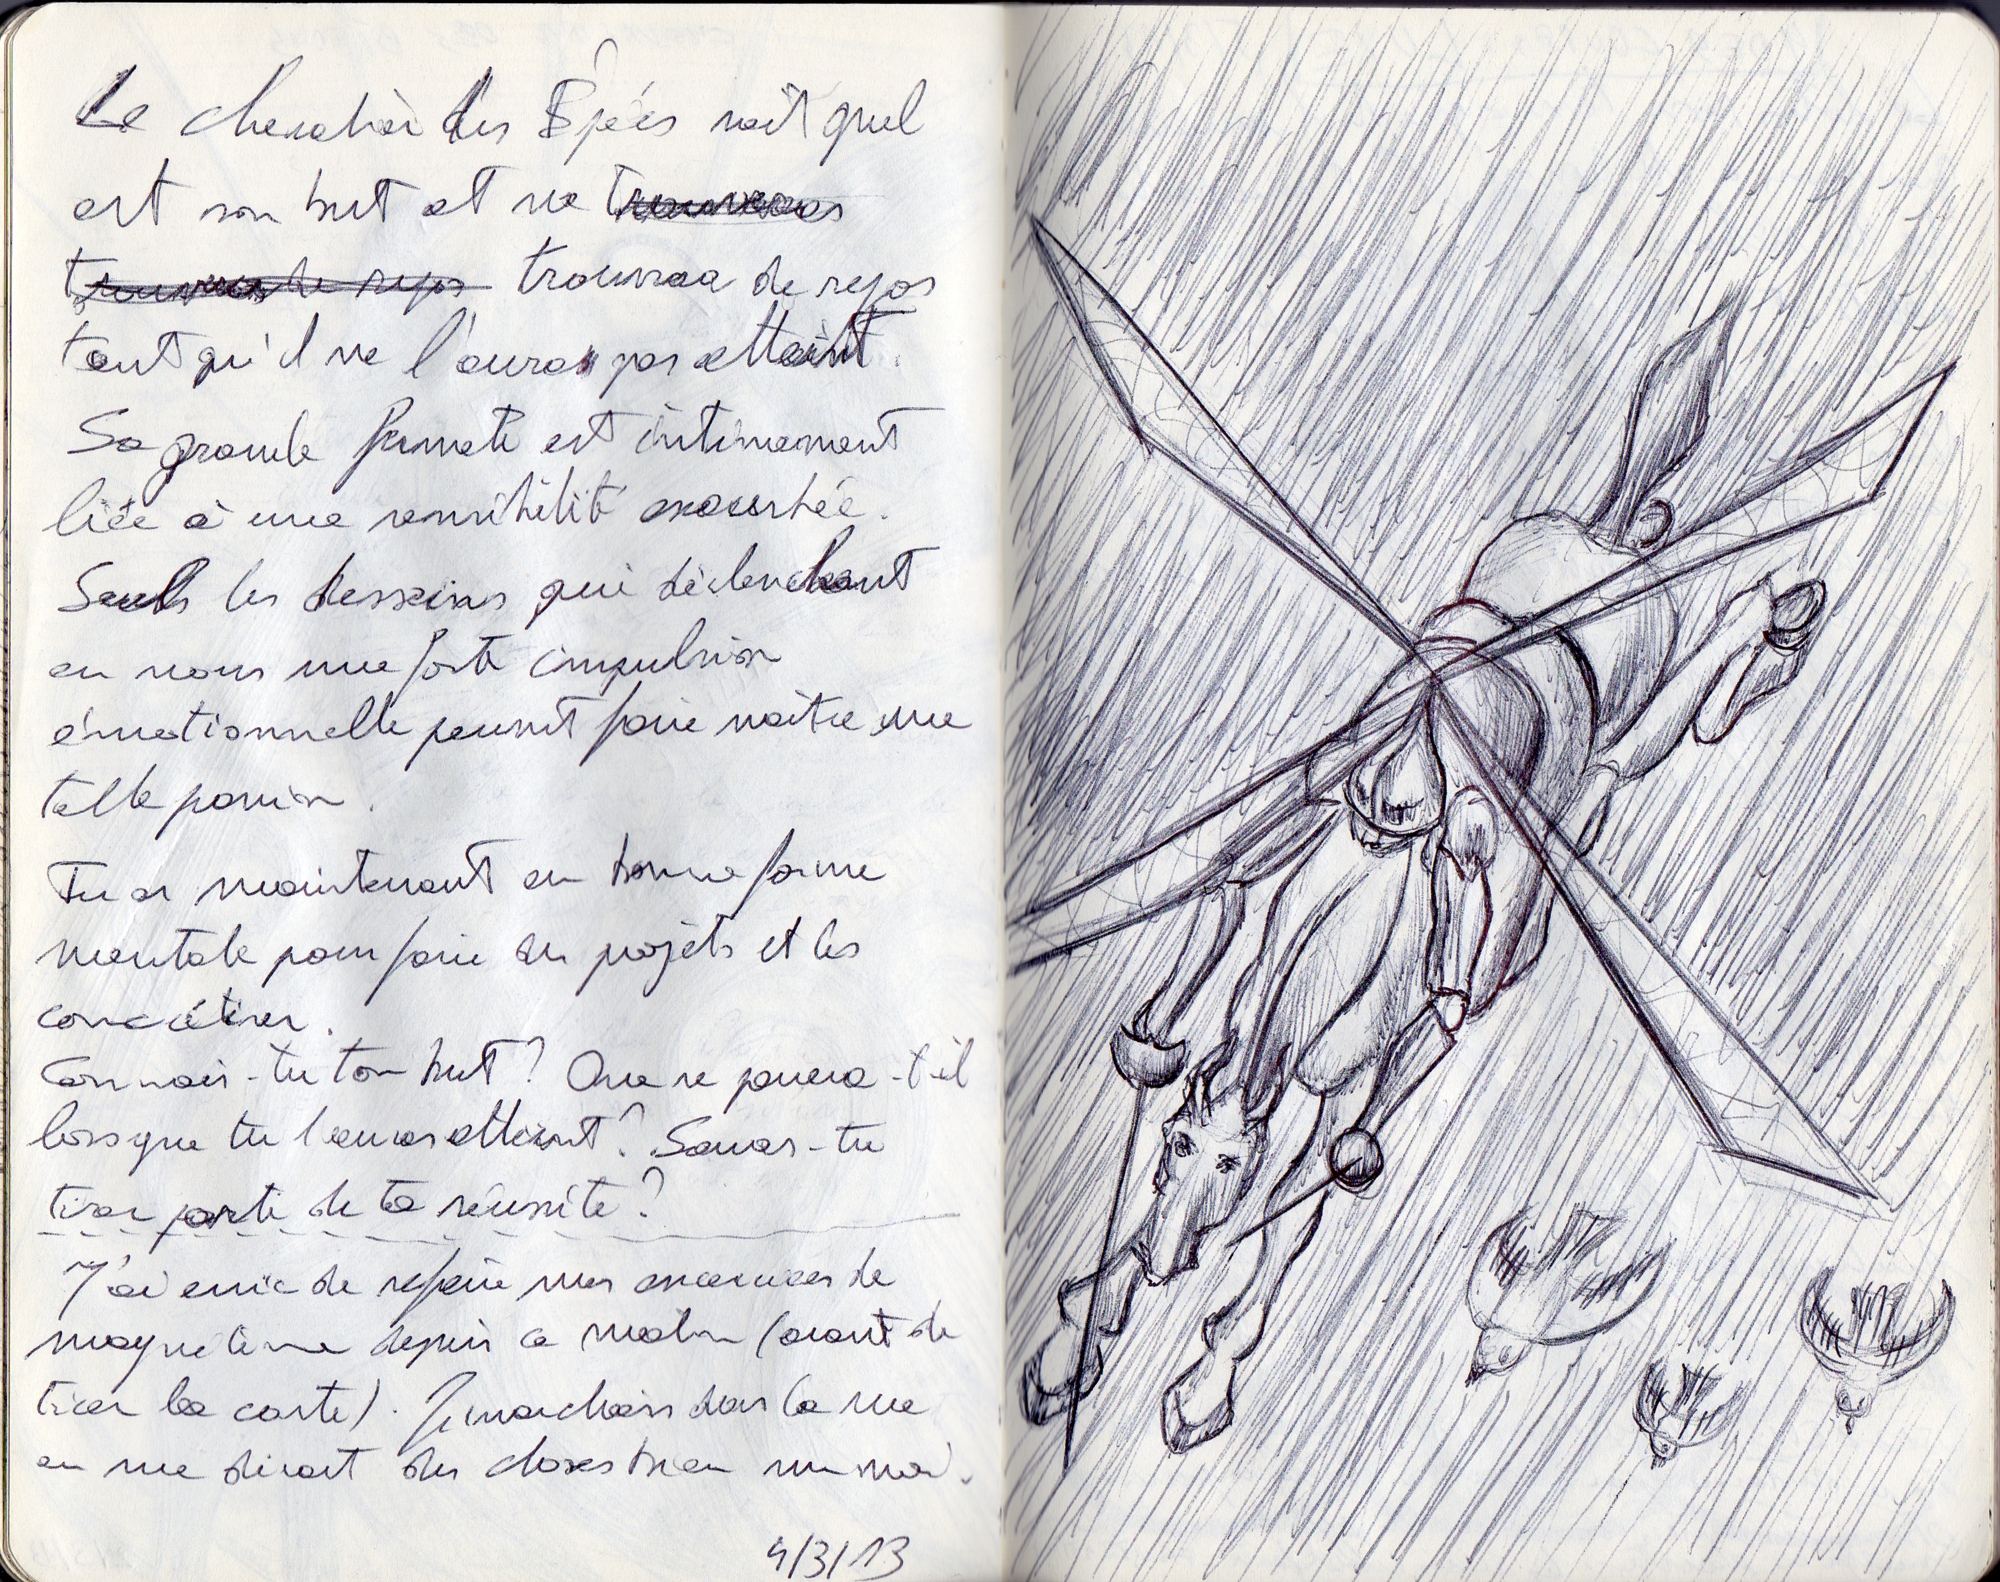 Le chevalier des Épées sait quel
est son but et ne trouvera
trouvera de repos trouvera de repos
tant qu'il ne l'aura pas atteint.
Sa grande fermeté est intimement
liée à une sensibilité exacerbée.
Seuls les desseins qui déclenchent
en nous une forte impulsion
émotionnelle peuvent faire naître une
telle passion.
Tu as maintenant en bonne forme
mentale pour faire des projets et les
concrétiser.
Connais-tu ton but ? Que se passera-t-il
lorsque tu l'auras atteint ? Sauras-tu
tirer partie de ta réussite ?
J'ai envie de refaire mes exercices de
magnétisme depuis ce matin (avant de
tirer la carte). Je marchais dans la rue
en me disant des choses bien sur moi.
4/3/13